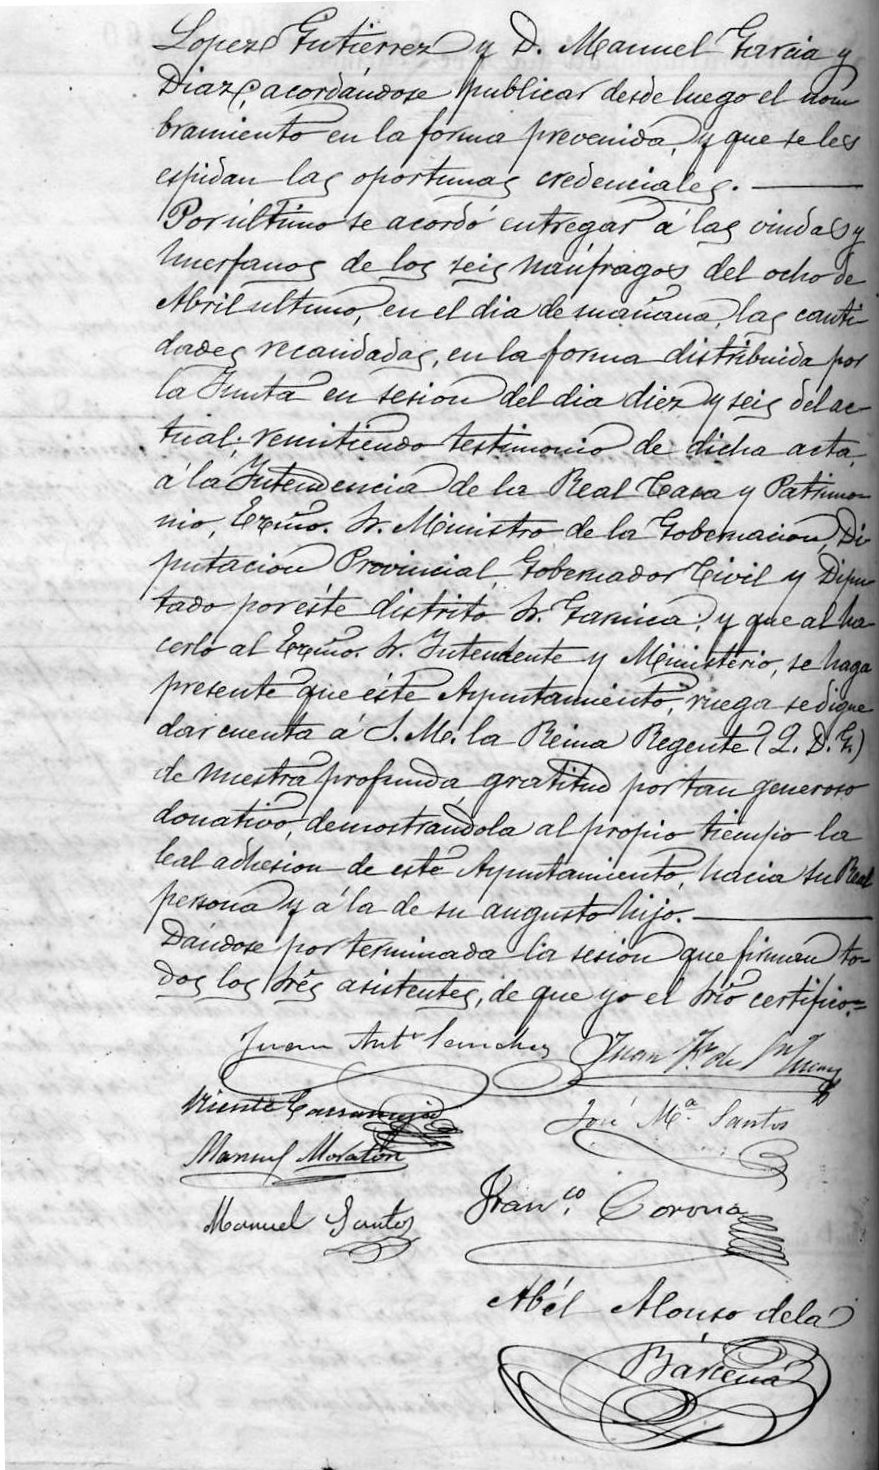 Lopez Gutierrez y D. Manuel Garcia y
Diaz, acordándose publicar desde luego el nom
bramiento en la forma prevenida, y que se les
espidan las oportunas credenciales.
Por último se acordó entregar á las viudas y
huerfanos de los seis naúfragos del ocho de
Abril ultimo, en el dia de mañana, las canti-
dades recaudadas, en la forma distribuida por
la Junta en sesion del dia diez y seis del ac-
tual; remitiendo testimonio de dicha acta,
á la Intendencia de la Real Casa y Patrimo-
nio, Excmo. Sr. Ministro de la Gobernacion, Di
putacion Provincial, Gobernador Civil y Dipu-
tado por éste distrito Sr. Garnica; y que al ha-
cerlo al Excmo. Sr. Intendente y Ministerio, se haga
presente que éste Ayuntamiento, ruega se digne
dar cuenta á S. M. la Reina Regente (Q. D. G.)
de nuestra profunda gratitud por tan generoso
donativo, demostrándola al propio tiempo la
leal adhesion de este Ayuntamiento, hacia su Real
persona y á la de su augusto hijo.
Dándose por terminada la sesion que firman to-
dos los Srés asistentes, de que yo el Srio certifico.=
Juan Ant.º Sanchez Juan Fr. de
Vicente
José M.ª Santos
Manuel Moraton
Fran.co Corona
Manuel Santos
Abél Alonso de la
Bárcena